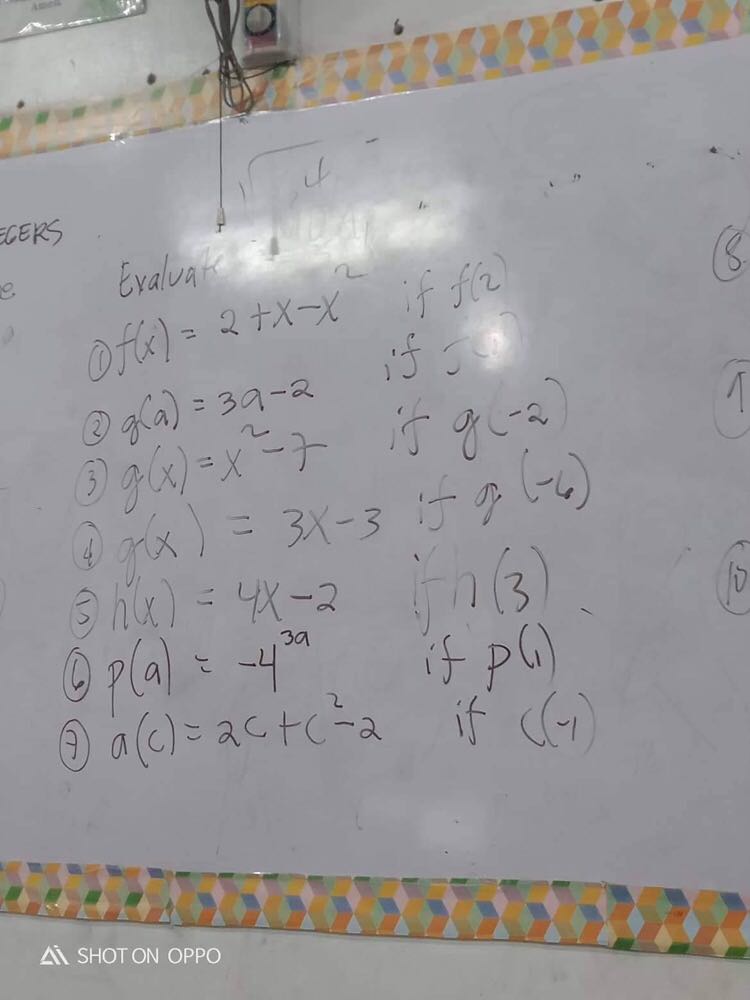 Ameit
EGERS
e
Evaluate
4
① f(x) = 2 + x - x² if f(2)
② g(a) = 3a - 2 if
③ g(x) = x² - 7 if g(-2)
④ g(x) = 3x - 3 if g(-6)
⑤ h(x) = 4x - 2 if h(3)
⑥ p(a) = -4³ᵃ if p(1)
⑦ a(c) = 2c + c² - 2 if c(-1)
⑧
⑩
SHOT ON OPPO